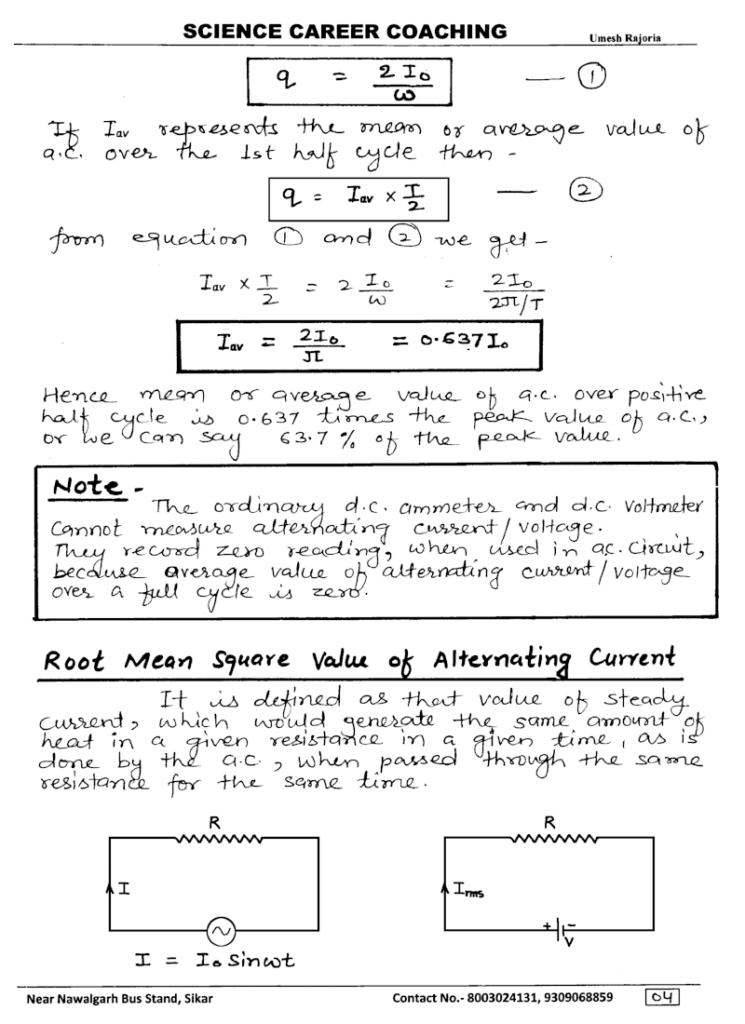 SCIENCE CAREER COACHING
Umesh Rajoria
q = 2 I₀/ω — ①
If Iav represents the mean or average value of
a.c. over the 1st half cycle then -
q = Iav × T/2 — ②
from equation ① and ② we get -
Iav × T/2 = 2 I₀/ω = 2I₀/2π/T
Iav = 2I₀/π = 0.637 I₀
Hence mean or average value of a.c. over positive
half cycle is 0.637 times the peak value of a.c.,
or we can say 63.7 % of the peak value.
Note -
The ordinary d.c. ammeter and d.c. voltmeter
cannot measure alternating current/voltage.
They record zero reading, when used in ac. circuit,
because average value of alternating current/voltage
over a full cycle is zero.
Root Mean Square Value of Alternating Current
It is defined as that value of steady
current, which would generate the same amount of
heat in a given resistance in a given time, as is
done by the a.c., when passed through the same
resistance for the same time.
R
I
I = I₀ Sinωt
R
Irms
+ -
V
Near Nawalgarh Bus Stand, Sikar
Contact No.- 8003024131, 9309068859
04